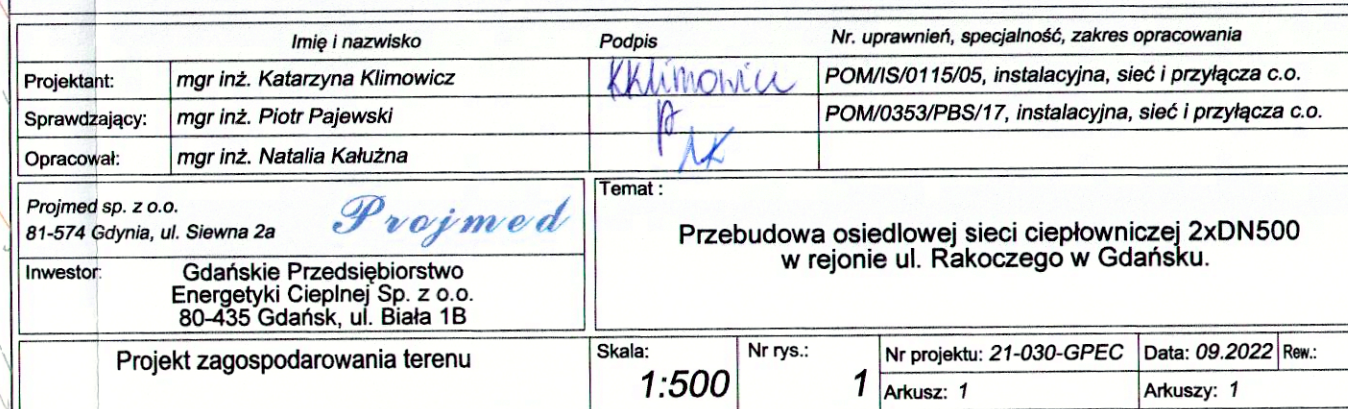 Imię i nazwisko Podpis Nr. uprawnień, specjalność, zakres opracowania
Projektant: mgr inż. Katarzyna Klimowicz KKlimowicz POM/IS/0115/05, instalacyjna, sieć i przyłącza c.o.
Sprawdzający: mgr inż. Piotr Pajewski POM/0353/PBS/17, instalacyjna, sieć i przyłącza c.o.
Opracował: mgr inż. Natalia Kałużna NK
Projmed sp. z o.o.
81-574 Gdynia, ul. Siewna 2a
Projmed
Inwestor: Gdańskie Przedsiębiorstwo
Energetyki Cieplnej Sp. z o.o.
80-435 Gdańsk, ul. Biała 1B
Temat :
Przebudowa osiedlowej sieci ciepłowniczej 2xDN500
w rejonie ul. Rakoczego w Gdańsku.
Projekt zagospodarowania terenu
Skala:
1:500
Nr rys.:
1
Nr projektu: 21-030-GPEC Data: 09.2022 Rew.:
Arkusz: 1 Arkuszy: 1